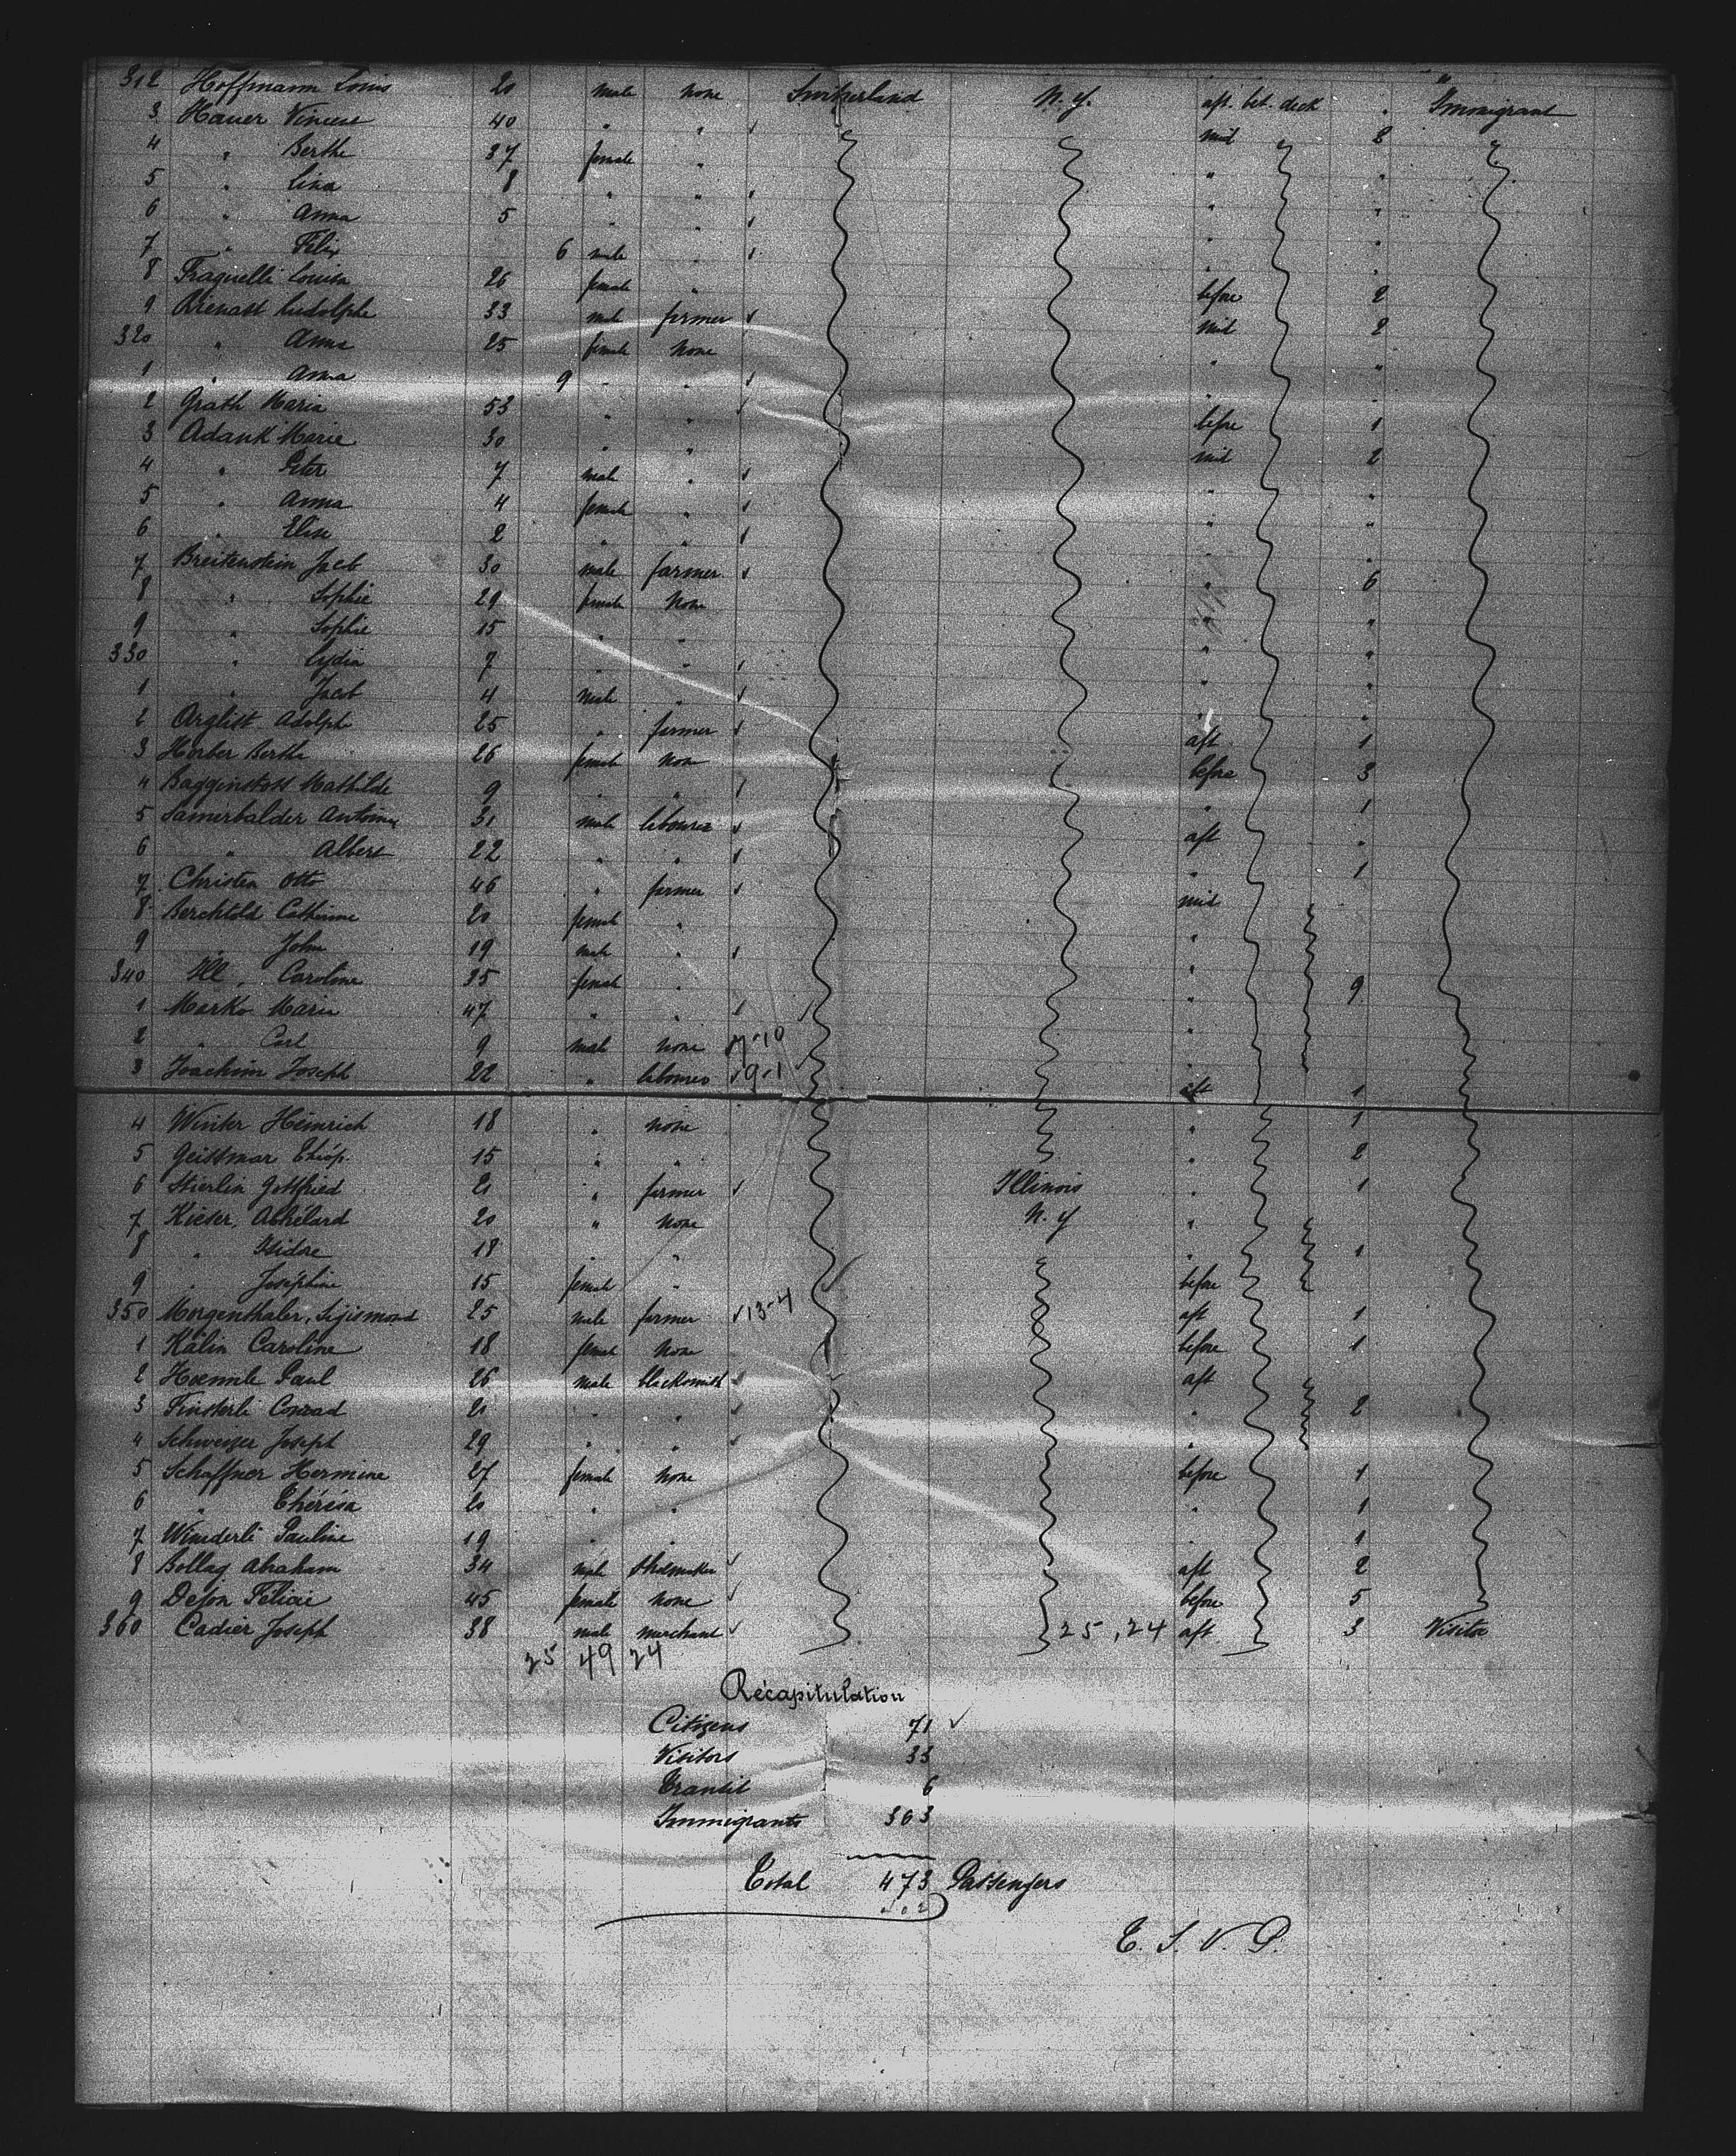 312 Hoffmann Louis 20 male none Switzerland N.Y. aft. bet. deck " Immigrant
3 Hauer Vincess 40 " " mid 8
4 " Berthe 37 female " " "
5 " Lina 8 " " " "
6 " Anna 5 " " " "
7 " Felix 6 male " " "
8 Fraquelli Louisa 26 female " before 2
9 Rudolphe 33 male farmer mid 2
320 " Anna 25 female none " "
1 " Anna 9 " " " "
2 Grath Maria 53 " " before 1
3 Adank Marie 30 " " mid 2
4 " Peter 7 male " " "
5 " Anna 4 female " " "
6 " Elise 2 " " "
7 Breitenstein Jacb 30 male farmer " 6
8 " Sophie 29 female none " "
9 " Sophie 15 " " " "
330 " Lydia 7 " " " "
1 " Jacob 4 male " " "
2 Adolph 25 " farmer aft 1
3 Horber Berthe 26 female none before 3
4 Bagginstoss Mathilde 9 " " " 1
5 Samerhalder Antoine 31 male labourer aft "
6 " Albert 22 " " " 1
7 Christen Otto 46 " farmer mid
8 Berchtold Catherine 20 female " "
9 " John 19 male " "
340 Ill, Caroline 35 female " " 9
1 Marko Maria 47 " " "
2 " Carl 9 male none 17-10
3 Joachim Joseph 22 " labourer 9-1 aft 1
4 Winter Heinrich 18 " none " 1
5 Geissmar Théop. 15 " " " 2
6 Stierlin Gottfried 21 " farmer Illinois " 1
7 Kieser, Abhélard 20 " none N.Y "
8 " Isidore 18 " " " 1
9 " Joséphine 15 female " before
350 Morgenthaler, Sigismond 25 male farmer 13-4 aft 1
1 Kälin Caroline 18 female none before 1
2 Haemmle Paul 26 male blacksmith aft
3 Finsterli Conrad 21 " " " 2
4 Schweizer Joseph 29 " " "
5 Schaffner Hermine 27 female none before 1
6 " Thérésa 20 " " " 1
7 Winderli Pauline 19 " " " 1
8 Bollag Abraham 34 male shoemaker aft 2
9 Defon Félicie 45 female none before 5
360 Cadier Joseph 38 male merchant 25,24 aft 3 Visitor
25 49 24
Récapitulation
Citizens 71
Visitors 33
Transit 6
Immigrants 363
Total 473 Passengers
T. S. V. P.